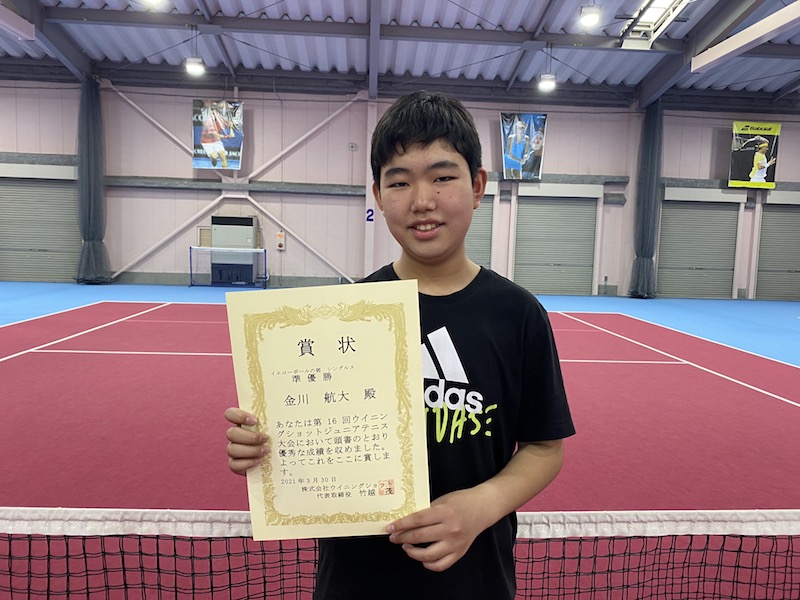 賞状
イエローボールの部 シングルス
準優勝
金川 航大 殿
あなたは第16回ウイニン
グショットジュニアテニス
大会において頭書のとおり
優秀な成績を収めました。
よってこれをここに賞しま
す。
2021年3月30日
株式会社ウイニングショット
代表取締役 竹越 茂
adidas
2
Babolat